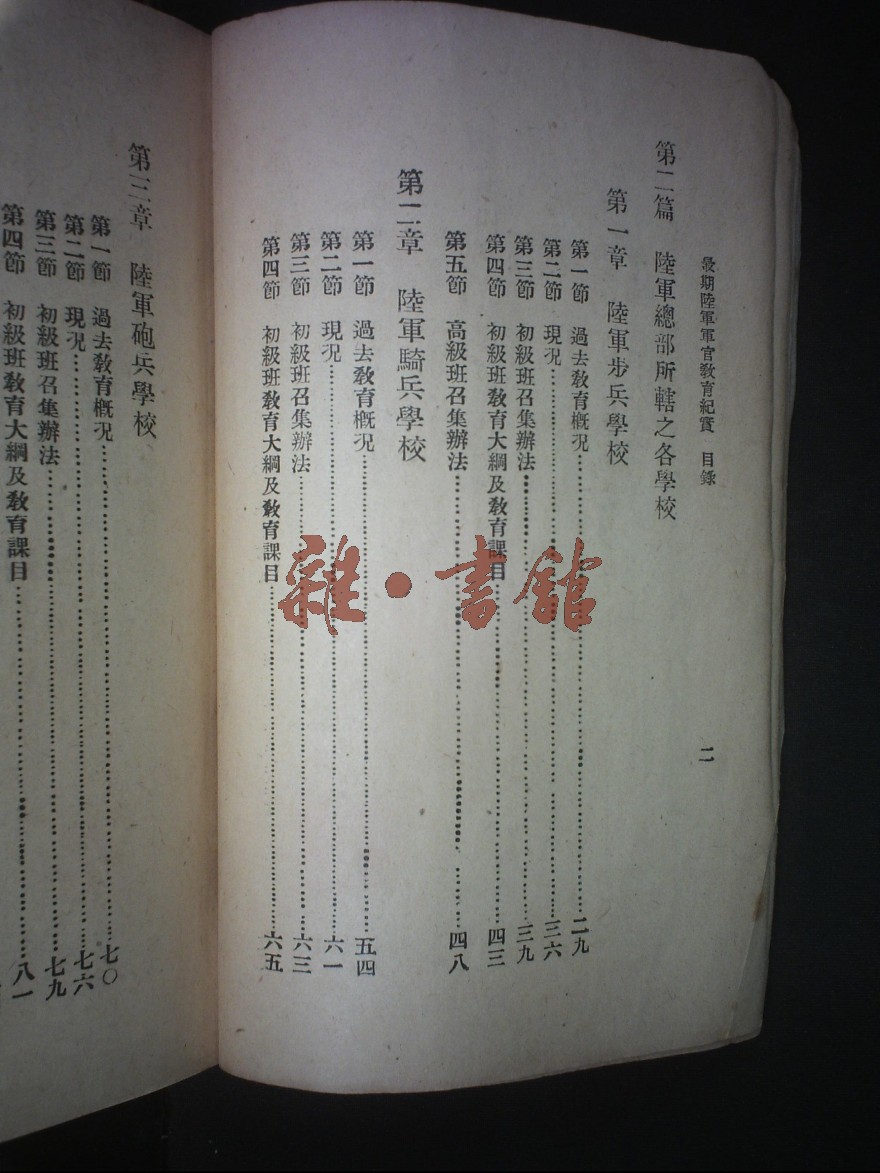 最期陸軍軍官教育紀實　目錄
二
第二篇　陸軍總部所轄之各學校
第一章　陸軍步兵學校
第一節　過去教育概況……二九
第二節　現況……三六
第三節　初級班召集辦法……三九
第四節　初級班教育大綱及教育課目……四三
第五節　高級班召集辦法……四八
第二章　陸軍騎兵學校
第一節　過去教育概況……五四
第二節　現況……六一
第三節　初級班召集辦法……六三
第四節　初級班教育大綱及教育課目……六五
第三章　陸軍砲兵學校
第一節　過去教育概況……七〇
第二節　現況……七六
第三節　初級班召集辦法……七九
第四節　初級班教育大綱及教育課目……八一
雜·書館